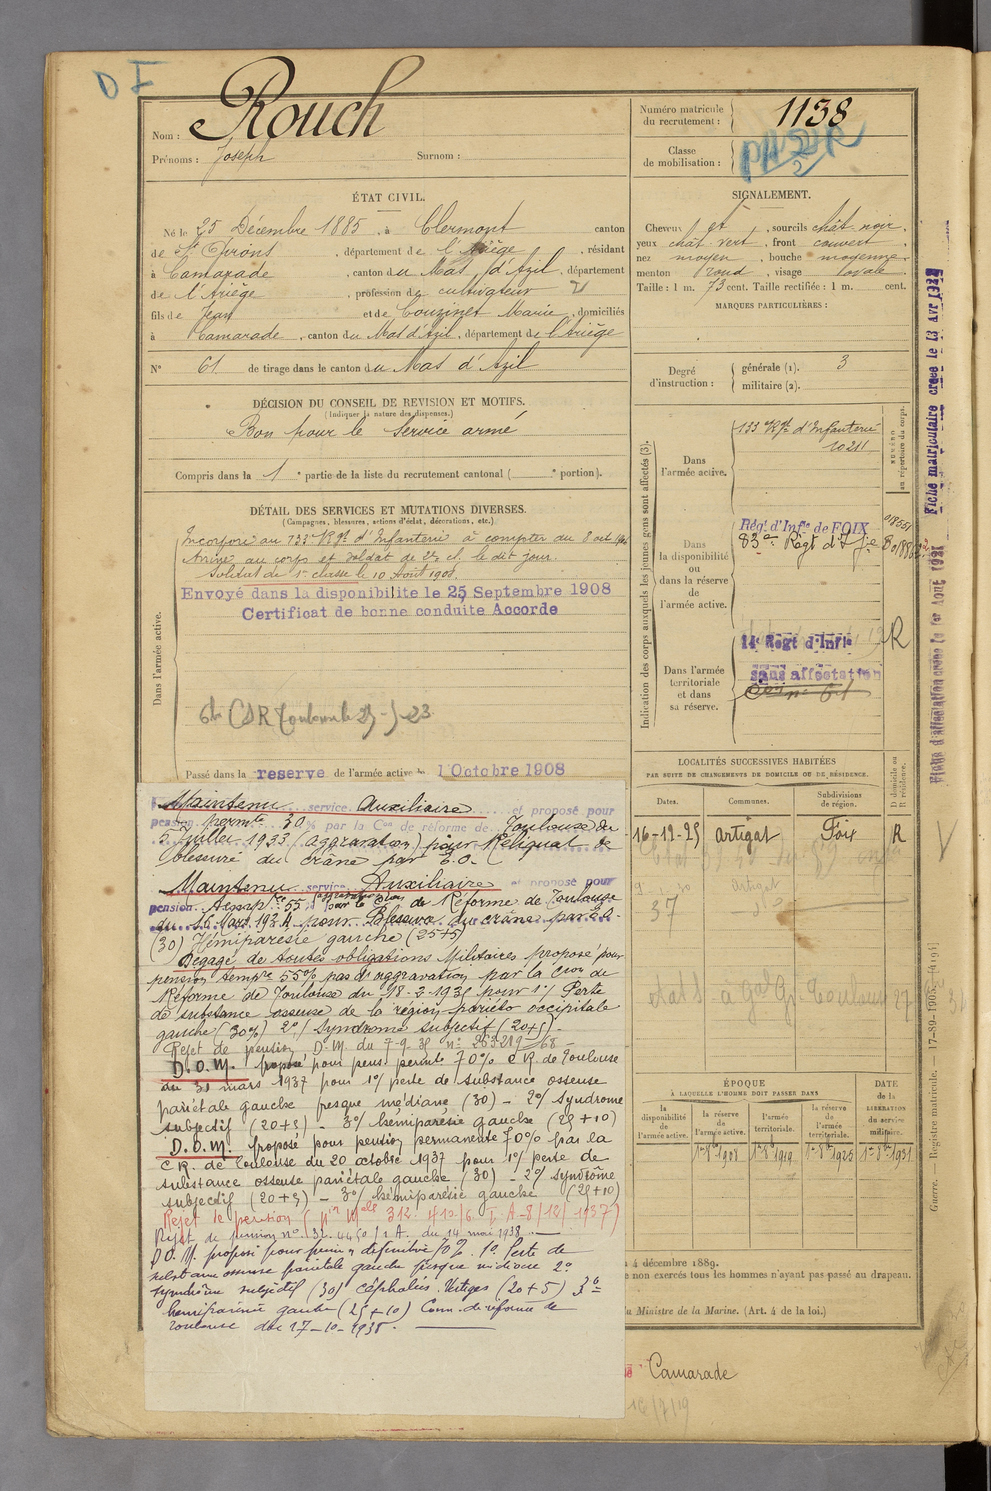 D I
Nom : Rouch
Prénoms : Joseph Surnom :
Numéro matricule du recrutement : 1138
Classe de mobilisation :
ÉTAT CIVIL.
Né le 25 Décembre 1885, à Clermont canton
de St Girons, département de l'Ariège, résidant
à Camarade, canton du Mas d'Azil, département
de l'Ariège, profession de cultivateur
fils de Jean et de Couzinet Marie, domiciliés
à Camarade, canton du Mas d'Azil, département de l'Ariège
N° 61 de tirage dans le canton du Mas d'Azil
SIGNALEMENT.
Cheveux , sourcils chât. noir,
yeux chât. vert, front couvert,
nez moyen, bouche moyenne,
menton rond, visage ovale.
Taille : 1 m. 73 cent. Taille rectifiée : 1 m. cent.
MARQUES PARTICULIÈRES :
Degré d'instruction : générale (1). 3
militaire (2).
DÉCISION DU CONSEIL DE REVISION ET MOTIFS.
(Indiquer la nature des dispenses.)
Bon pour le service armé
Compris dans la 1e partie de la liste du recrutement cantonal ( e portion).
DÉTAIL DES SERVICES ET MUTATIONS DIVERSES.
(Campagnes, blessures, actions d'éclat, décorations, etc.)
Dans l'armée active.
Incorporé au 133e Rgt d'Infanterie à compter du 8 oct
Arrivé au corps et soldat de 2e cl. le dit jour.
Soldat de 1e classe le 10 Août 1908.
Envoyé dans la disponibilite le 25 Septembre 1908
Certificat de bonne conduite Accorde
Passé dans la reserve de l'armée active le 1 Octobre 1908
Indication des corps auxquels les jeunes gens sont affectés (3).
NUMÉRO au répertoire du corps.
Dans l'armée active.
133 Rgt d'Infanterie
10211
Dans la disponibilité ou dans la réserve de l'armée active.
Régt d'Infie de FOIX
83e Régt d'Infie
Dans l'armée territoriale et dans sa réserve.
14e Regt d'Infie
R
sans affectation
Fiche matriculaire créée le 13 Avr
Fiche d'affectation créée le 1er Août
LOCALITÉS SUCCESSIVES HABITÉES
PAR SUITE DE CHANGEMENTS DE DOMICILE OU DE RÉSIDENCE.
D domicile ou R résidence.
Dates. Communes. Subdivisions de région.
16-12-25 Artigat Foix R
Artigat
37
ÉPOQUE
À LAQUELLE L'HOMME DOIT PASSER DANS
DATE de la LIBÉRATION du service militaire.
la disponibilité de l'armée active. la réserve de l'armée active. l'armée territoriale. la réserve de l'armée territoriale.
1er 8bre 1908 1er 8bre 1919 1er 8bre 1925 1er 8bre 1931
Maintenu service Auxiliaire et proposé pour
pension permte 30% par la Con de réforme de Toulouse du
5 Juillet 1933 (aggravation) pour Reliquat de
blessure du crâne par E.O.
Maintenu service Auxiliaire et proposé pour
pension temp. 55 (aggravation) par la C. de Réforme de Toulouse
du 16 1934 pour Blessure du crâne par é.o.
(30) Hémiparésie gauche (25+5)
Dégagé de toutes obligations Militaires proposé pour
pension tempre 55% pas d'aggravation par la Cion de
Réforme de Toulouse du 18-2-1935 pour 1°/ Perte
de substance osseuse de la région pariéto occipitale
gauche (30%) 2°/ Syndrome subjectif (20+5).
Rejet de pension D.M. du 7-9-35 n°
D.O.M. proposé pour pens. permte 70% C.R. de Toulouse
du 31 mars 1937 pour 1°/ perte de substance osseuse
pariétale gauche presque médiane (30) - 2°/ syndrome
subjectif (20+5) - 3°/ hémiparésie gauche (25+10)
D.O.M. proposé pour pension permanente 70% par la
C.R. de Toulouse du 20 octobre 1937 pour 1°/ perte de
substance osseuse pariétale gauche (30) - 2°/ syndrome
subjectif (20+5) - 3°/ hémiparésie gauche (25+10)
Rejet de pension
Rejet de pension n° du 14 mai 1938.
D.O.M. proposé pour pension définitive 70% 1° Perte de
substance osseuse pariétale gauche presque médiane 2°
syndrome subjectif (30) céphalées. Vertiges (20+5) 3°
hémiparésie gauche (25+10) Com. de réforme de
Toulouse du 17-10-1938.
4 décembre 1889.
e non exercés tous les hommes n'ayant pas passé au drapeau.
u Ministre de la Marine. (Art. 4 de la loi.)
Camarade
Guerre. — Registre matricule. — 17-89-1905.